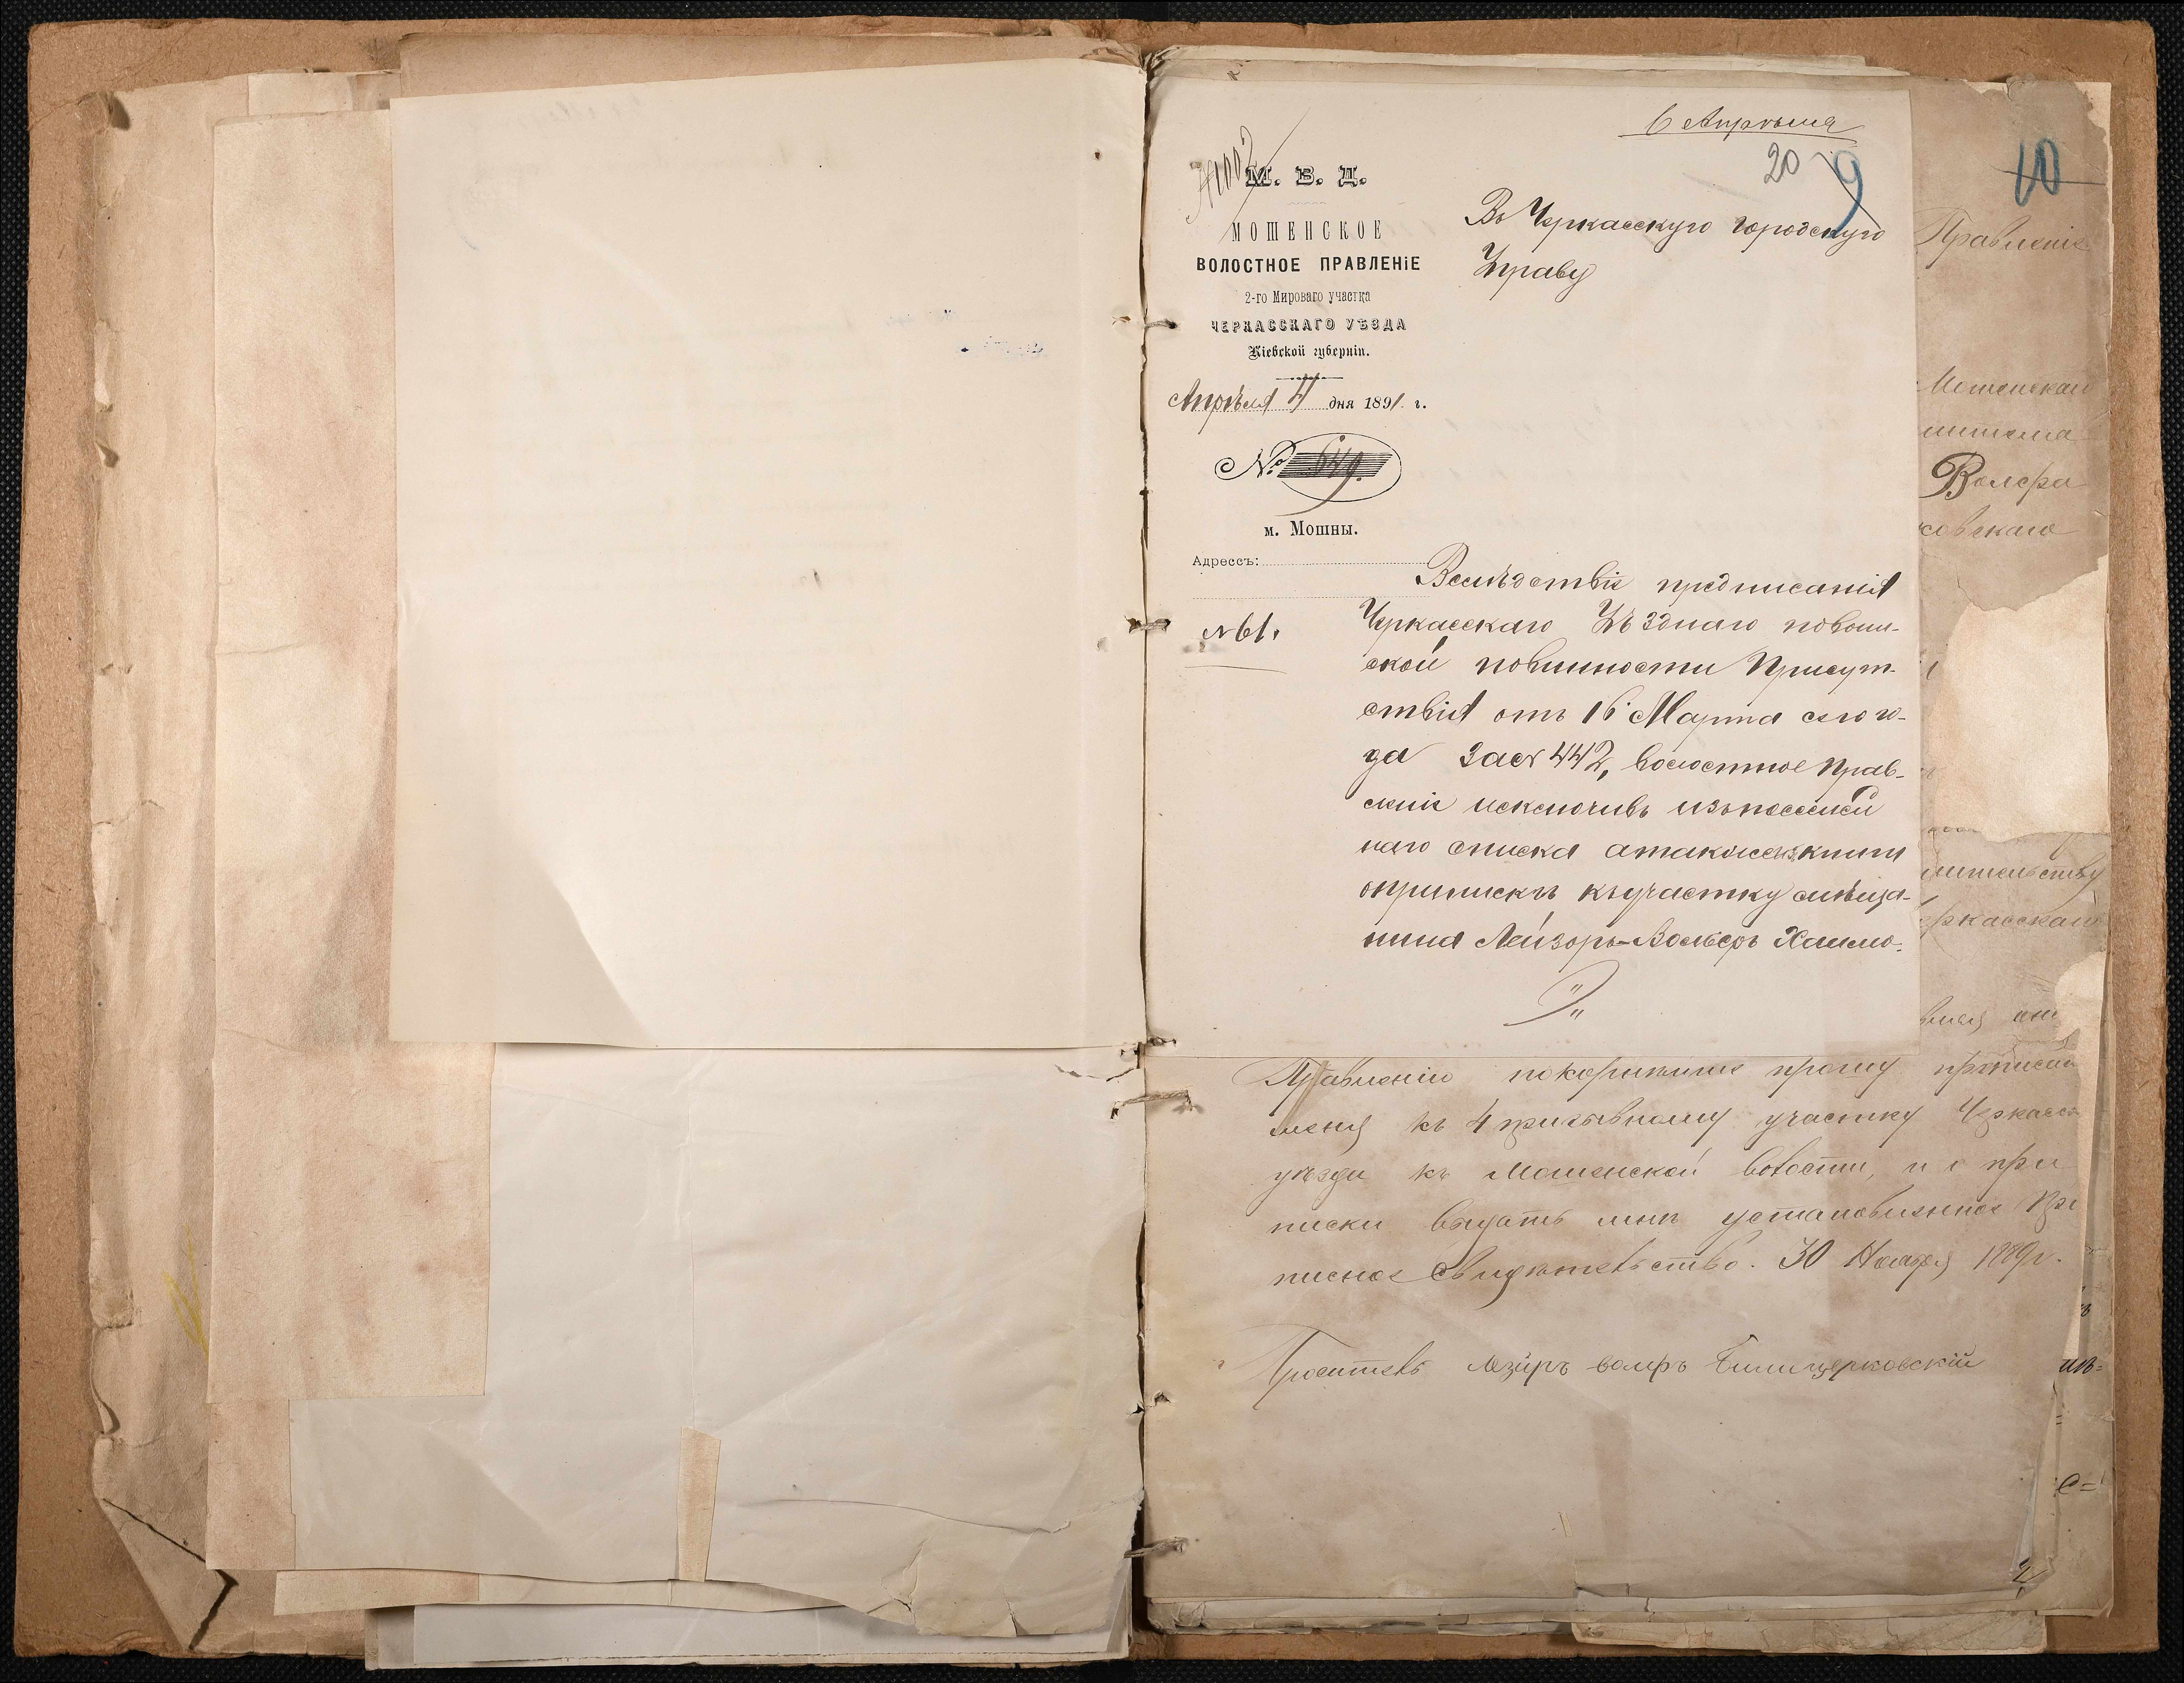 6 Апрѣля
20
9
№1002
М. В. Д.
МОШЕНСКОЕ
ВОЛОСТНОЕ ПРАВЛЕНІЕ
2-го Мироваго участка
ЧЕРКАССКАГО УѢЗДА
Кіевской губерніи.
Апрѣля 4 дня 1891 г.
№ 649.
м. Мошны.
Адрессъ:
№61.
Въ Черкасскую городскую
Управу
Вслѣдствіе предписанія
Черкасскаго Уѣзднаго по воин-
ской повинности Присут-
ствія отъ 16 Марта сего го-
да за № 442, волостное Прав-
леніе исключивъ изъ посемей
наго списка а также изъ книги
о припискѣ къ участку мѣща-
нина Лейзоръ-Вольфъ Хаимо-
10
Правленіе
Мошенской
Волфа
ковскаго
Правленію покорнѣйше прошу приписать
меня къ 4 призывному участку Черкасск
уѣзда къ Мошенской волости, и о при
писки выдать мнѣ установленное При
писное свидѣтельство. 30 Ноября 1889 г.
Проситель Лезиръ Волфъ Билицерковскій
2